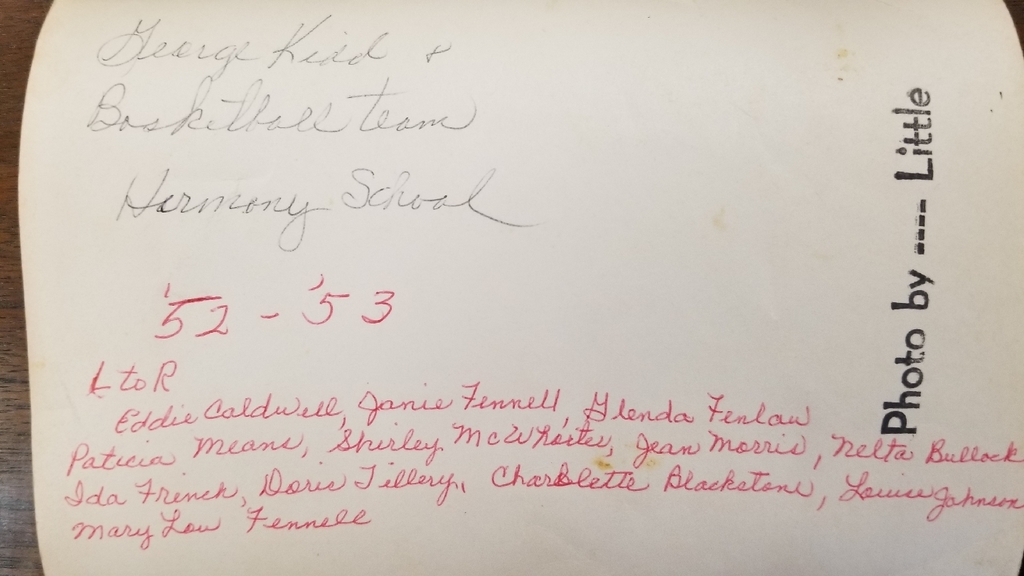 George Kidd &
Basketball team
Harmony School
'52 - '53
L to R
Eddie Caldwell, Janie Fennell, Glenda Fenlaw
Paticia Means, Shirley McWhorter, Jean Morris, Nelta Bullock
Ida French, Doris Tillery, Charblette Blackstone, Louise Johnson
Mary Lou Fennell
Photo by ---- Little